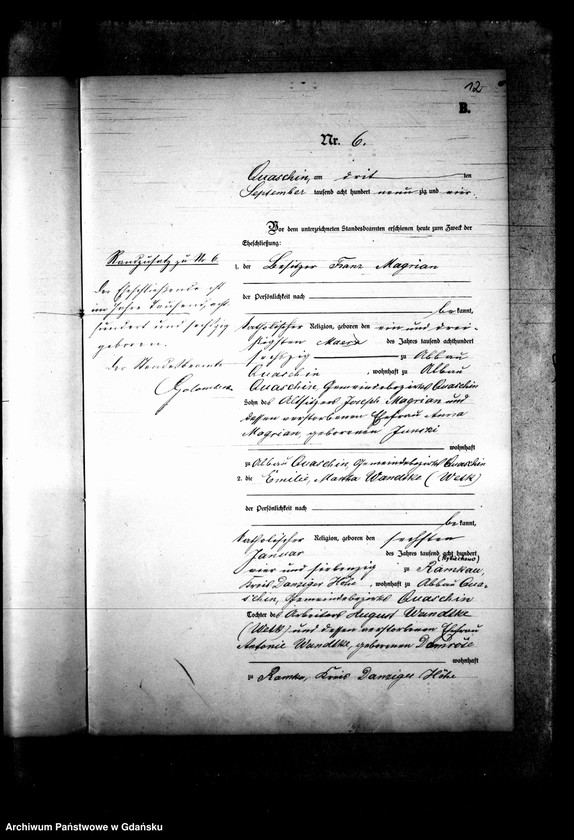 12
B.
Nr. 6.
Quaschin, am drit ten
September tausend acht hundert neun zig und vier.
Vor dem unterzeichneten Standesbeamten erschienen heute zum Zweck der
Eheschließung:
1. der Besitzer Franz Magrian
der Persönlichkeit nach
be kannt,
katholischer Religion, geboren den ein und drei-
ßigsten Maerz des Jahres tausend achthundert
sechzig zu Abbau
Quaschin, wohnhaft zu Abbau
Quaschin, Gemeindebezirks Quaschin
Sohn des Altsitzers Joseph Magrian und
dessen verstorbenen Ehefrau Anna
Magrian, geborenen
wohnhaft
zu Abbau Quaschin, Gemeindebezirks Quaschin
2. die Emilie, Martha Wandtke
der Persönlichkeit nach
be kannt,
katholischer Religion, geboren den sechsten
Januar des Jahres tausend acht hundert
vier und siebenzig zu Ramkau,
Kreis Danziger Höhe, wohnhaft zu Abbau Qua-
schin, Gemeindebezirks Quaschin
Tochter des Arbeiters August Wandtke
und dessen verstorbenen Ehefrau
Antonie Wandtke, geborenen
wohnhaft
zu Ramkau, Kreis Danziger Höhe
Randzusatz zu Nr 6.
Der Eheschließende ist
im Jahre Tausend acht
hundert und sechzig
geboren.
Der Standesbeamte
Archiwum Państwowe w Gdańsku